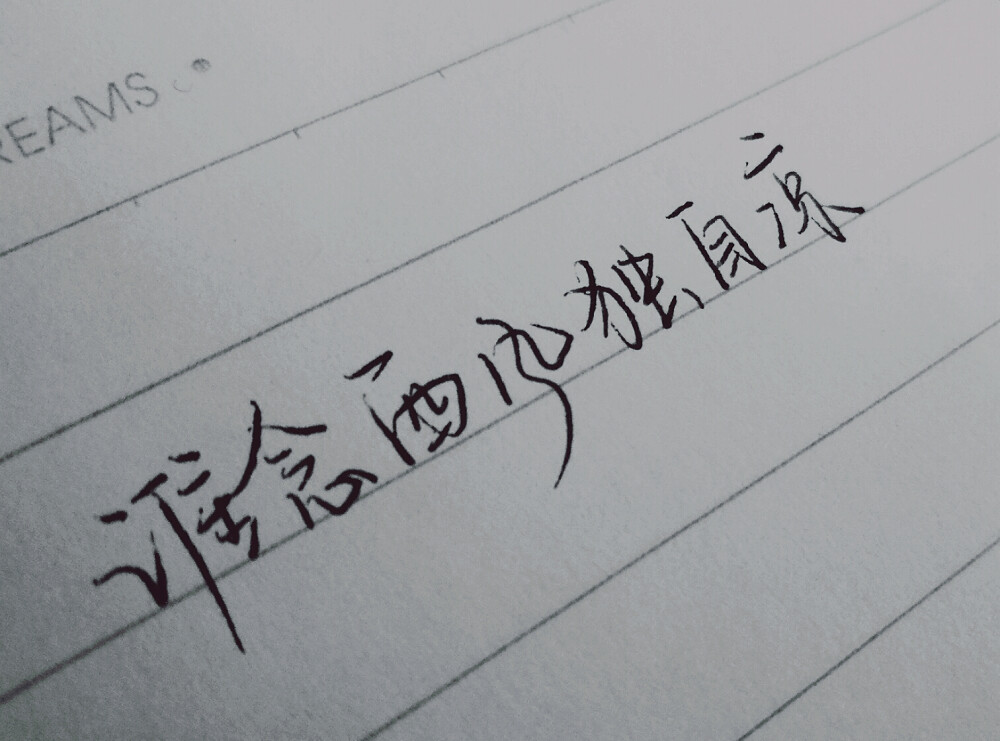 REAMS
谁念西风独自凉